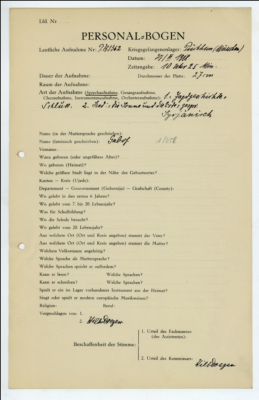 Lfd. Nr
PERSONAL-BOGEN
Lautliche Aufnahme Nr.: Kriegsgefangenenlager: Puchheim (München)
Datum:
Zeitangabe: 10 Uhr 25 Min.
Dauer der Aufnahme: Durchmesser der Platte: 27 cm
Raum der Aufnahme:
Art der Aufnahme (Sprechaufnahme, Gesangsaufnahme,
Choraufnahme, Instrumentenaufnahme, Orchesteraufnahme): 1.
Schluß. 2.
Syrjänisch
Name (in der Muttersprache geschrieben):
Name (lateinisch geschrieben):
Vorname:
Wann geboren (oder ungefähres Alter):
Wo geboren (Heimat):
Welche größere Stadt liegt in der Nähe des Geburtsortes:
Kanton – Kreis (Ujezd):
Department – Gouvernement (Gubernija) – Grafschaft (County):
Wo gelebt in den ersten 6 Jahren?
Wo gelebt vom 7. bis 20. Lebensjahr?
Was für Schulbildung?
Wo die Schule besucht?
Wo gelebt vom 20. Lebensjahr?
Aus welchem Ort (Ort und Kreis angeben) stammt der Vater?
Aus welchem Ort (Ort und Kreis angeben) stammt die Mutter?
Welchem Volksstamm angehörig?
Welche Sprache als Muttersprache?
Welche Sprachen spricht er außerdem?
Kann er lesen? Welche Sprachen?
Kann er schreiben? Welche Sprachen?
Spielt er ein im Lager vorhandenes Instrument aus der Heimat?
Singt oder spielt er modern europäische Musikweisen?
Religion: Beruf:
Vorgeschlagen von: 1.
2.
Beschaffenheit der Stimme:
1. Urteil des Fachmannes
(des Assistenten):
2. Urteil des Kommissars: